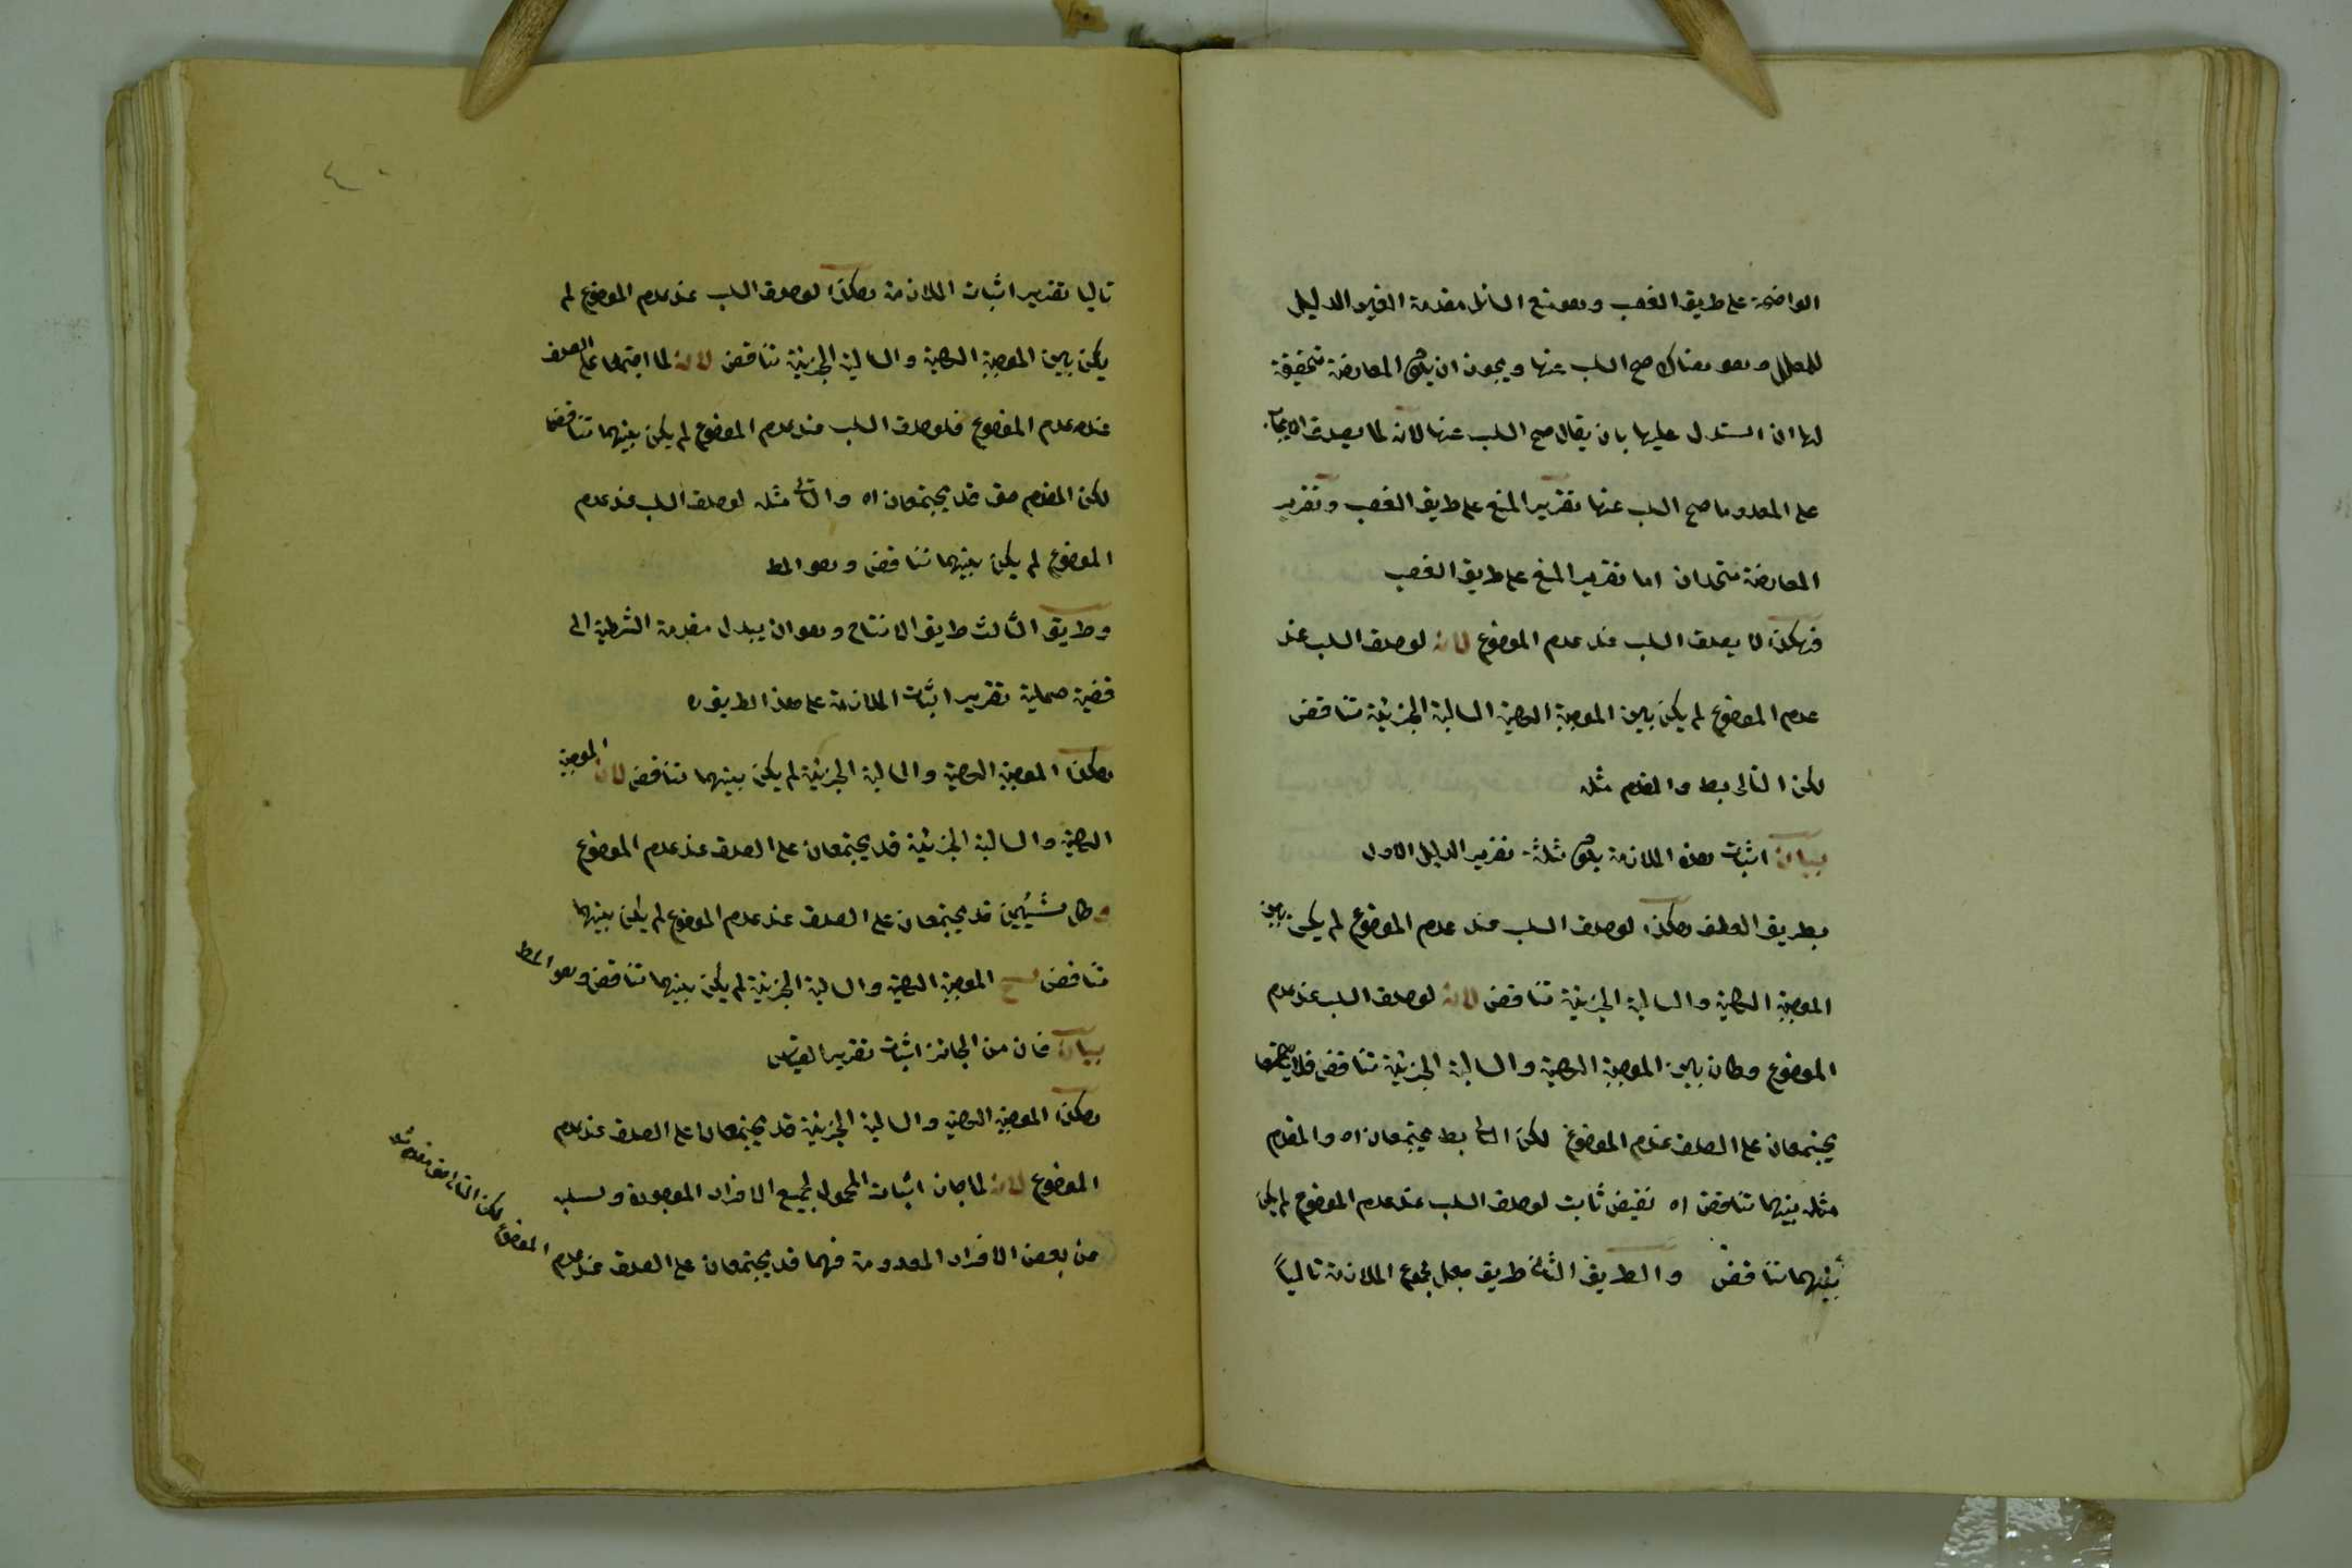 الواضحة على طريق الغصب وهو منع السائل مقدمة الغير الدليل
للمعلل وهو هناك صح السلب عنها ويجوز ان يكون المعارضة تحقيقة
لها ان استدل عليها بان يقال صح السلب عنها لانه لما يصدق الايجاب
على المعدوما صح السلب عنها تقرير المنع على طريق الغصب وتقرير
المعارضة متحدان اما تقرير المنع على طريق الغصب
فهكذا لا يصدق السلب عند عدم الموضوع لانه لوصدق السلب عند
عدم الموضوع لم يكن بين الموجبة الكلية السالبة الجزئية تناقض
لكن التالى بط والمقدم مثله
بيان اثبات هذه الملازمة يكون ثلثة تقرير الدليل الاول
بطريق العطف هكذا لوصدق السلب عند عدم الموضوع لم يكن بين
الموجبة الكلية والسالبة الجزئية تناقض لانه لوصدق السلب عند عدم
الموضوع وكان بين الموجبة الكلية والسالبة الجزئية تناقض فلا يجتمعا
يجتمعان على الصدق عند عدم الموضوع لكن التالى بط يجتمعان اه والمقدم
مثله بينهما تناقض اه نقيض ثابت لوصدق السلب عند عدم الموضوع لم يكن
بينهما تناقض والطريق الثانى طريق جعل مجموع الملازمة تالياً
٤٠
تاليا تقرير اثبات الملازمة هكذا لوصدق السلب عند عدم الموضوع لم
يكن بين الموجبة الكلية والسالبة الجزئية تناقض لانه لما اجتمعا على الصدق
عند عدم الموضوع فلوصدق السلب عند عدم الموضوع لم يكن بينهما تناقضا
لكن المقدم حق قد يجتمعان اه والتالى مثله لوصدق السلب عند عدم
الموضوع لم يكن بينهما تناقض وهو المط
وطريق الثالث طريق الانتاج وهو ان يبدل مقدمة الشرطية الى
قضية حملية تقرير اثبات الملازمة على هذا الطريق
هكذا الموجبة الكلية والسالبة الجزئية لم يكن بينهما تناقض لان الموجبة
الكلية والسالبة الجزئية قد يجتمعان على الصدق عند عدم الموضوع
وكل شيئين قد يجتمعان على الصدق عند عدم الموضوع لم يكن بينهما
تناقض ينتج الموجبة الكلية والسالبة الجزئية لم يكن بينهما تناقض وهو المط
بيان فان من الجائز اثبات تقرير القياس
هكذا الموجبة الكلية والسالبة الجزئية قد يجتمعان على الصدق عند عدم
الموضوع لانه لما جاز اثبات المحمول لجميع الافراد الموجودة وسلبه
من بعض الافراد المعدومة فهما قد يجتمعان على الصدق عند عدم الموضوع لكن التالى حق